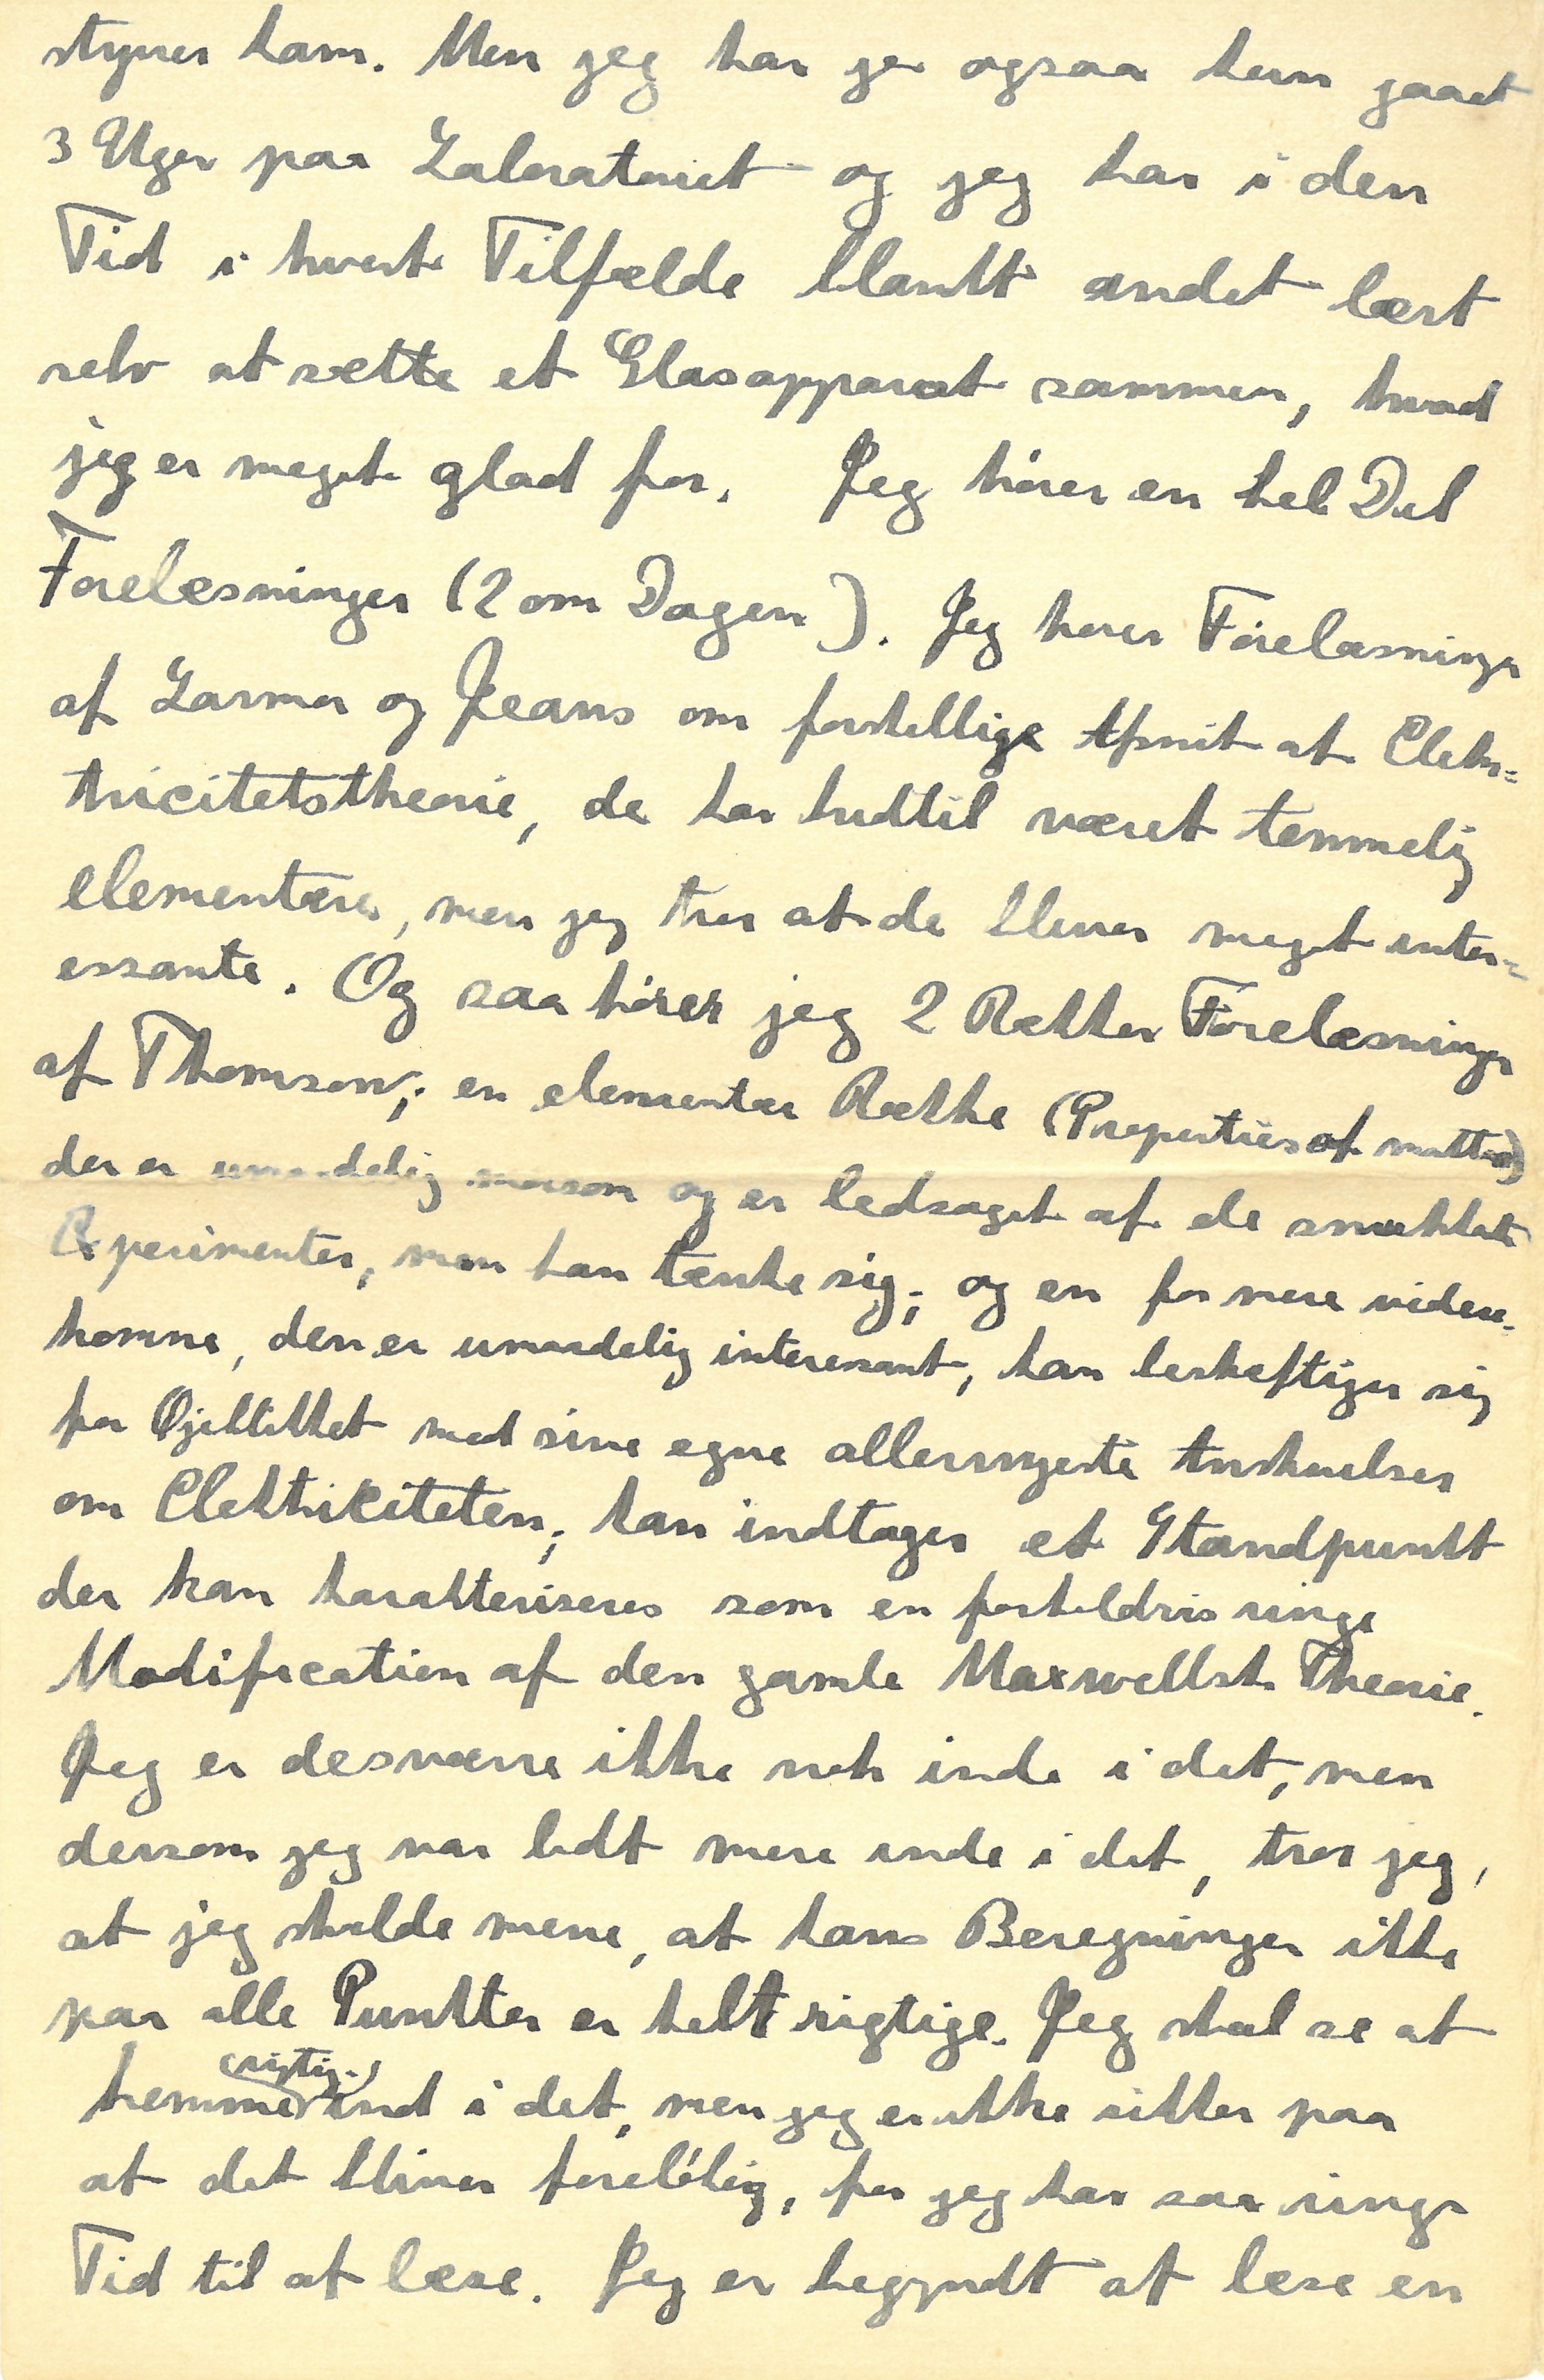 styrer ham. Men jeg har jo ogsaa kun gaaet
3 Uger paa Laboratoriet og jeg har i den
Tid i hvert Tilfælde blandt andet lært
selv at sætte et Glasapparat sammen, hvad
jeg er meget glad for. Jeg hører en hel Del
Forelæsninger (2 om Dagen). Jeg hører Forelæsninger
af Larmor og Jeans om forskellige Afsnit af Elek-
tricitetstheorie, de har hidtil været temmelig
elementære, men jeg tror at de bliver meget inter-
essante. Og saa hører jeg 2 Rækker Forelæsninger
af Thomson; en elementær Række (Properties of matter)
der er umaadelig morsom og er ledsaget af de smukkeste
Experimenter, man kan tænke sig; og en for mere videre-
komne, den er umaadelig interessant, han beskæftiger sig
for Øjeblikket med sine egne allernyeste Anskuelser
om Elektriciteten; han indtager et Standpunkt
der kan karakteriseres som en forholdsvis ringe
Modification af den gamle Maxwellske Theorie.
Jeg er desværre ikke nok inde i det, men
dersom jeg var lidt mere inde i det, tror jeg,
at jeg skulde mene, at hans Beregninger ikke
paa alle Punkter er helt rigtige. Jeg skal se at
(rigtig)
komme ind i det, men jeg er ikke sikker paa
at det bliver foreløbig, for jeg har saa ringe
Tid til at læse. Jeg er begyndt at læse en